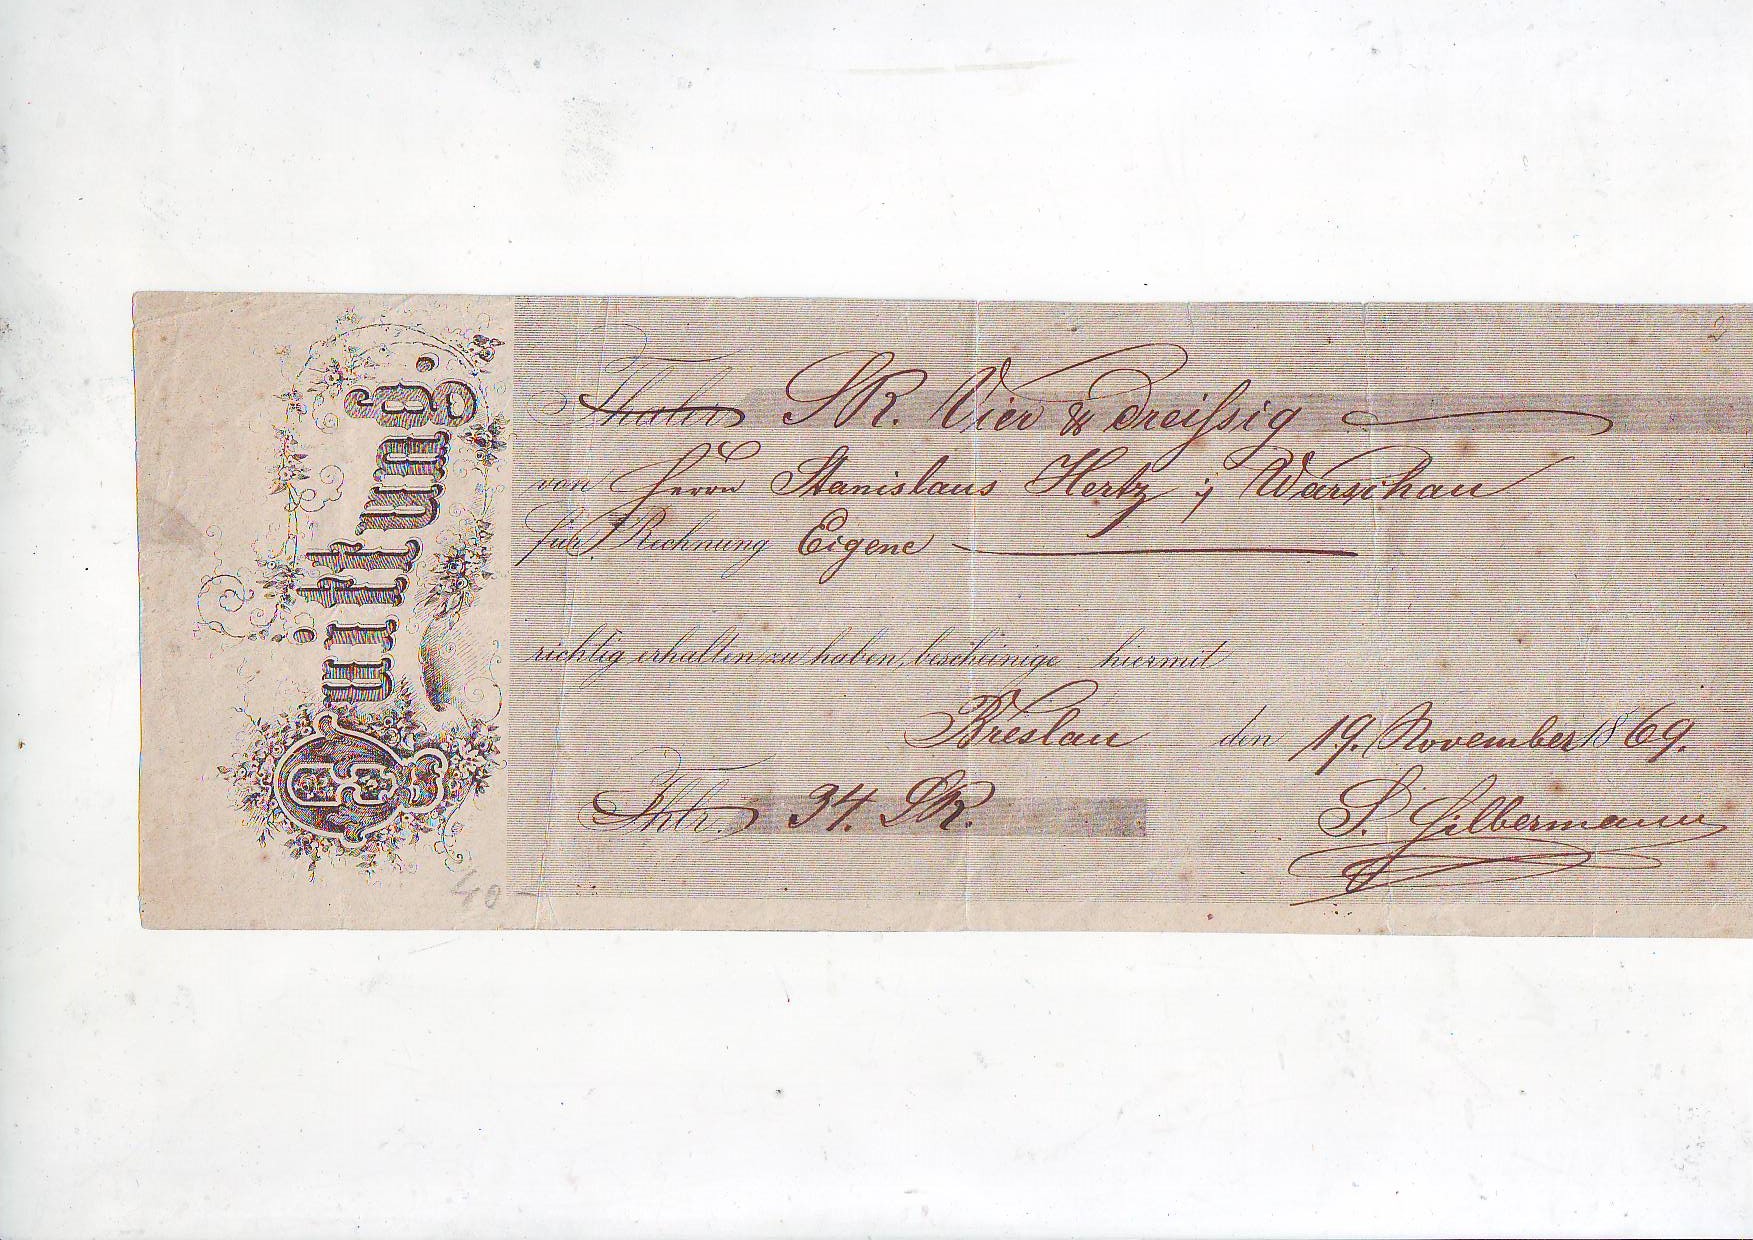 Quittung.
Thaler SR. Vier & dreißig
von Herrn Stanislaus Hertz i/ Warschau
für Rechnung Eigene
richtig erhalten zu haben, bescheinige hiermit
Breslau den 19. November 1869.
Thlr. 34. SR.
S. Silbermann
40 –